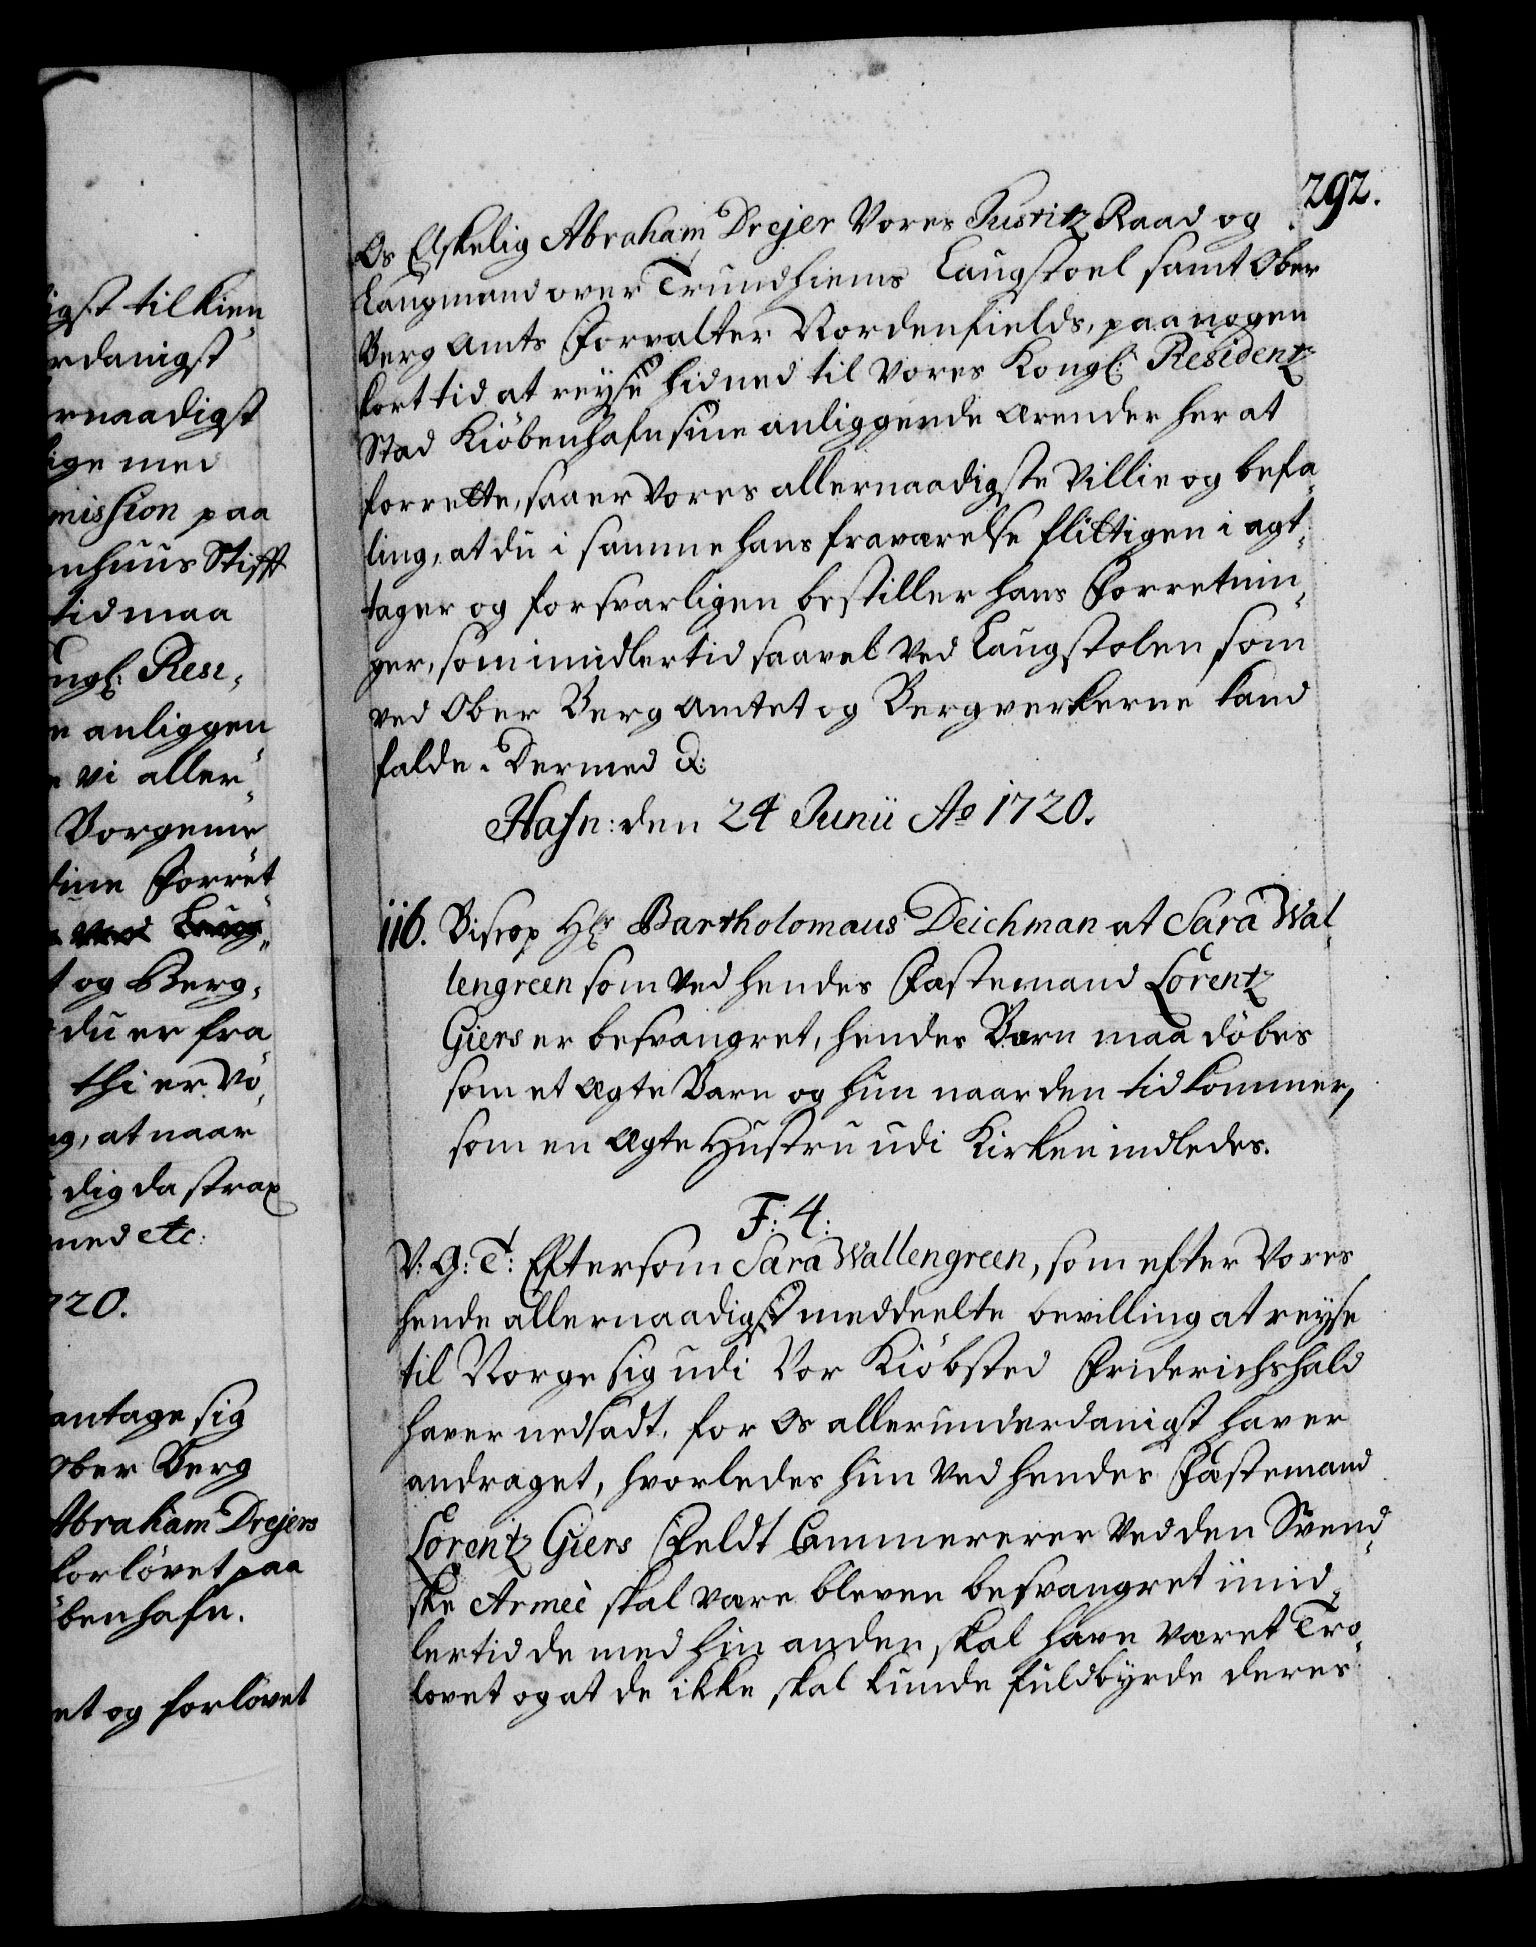 292.
Os Elskelig Abraham Drejer Vores Justitz Raad og
Laugmand over Trundhiems Laugstoel samt Ober
Berg Amts Forvalter Nordenfields, paa nogen
kort tid at reyse hidned til Vores Kongl: Residentz
Stad Kiöbenhafn sine anliggende Ærender her at
forrette, saa er Vores allernaadigste Villie og befa„
ling, at du i samme hans fraværelse flittigen i agt„
tager og forsvarligen bestiller hans Forretnin„
ger, som imidlertid saavel ved Laugstolen som
ved Ober Berg Amtet og Bergverkerne kand
falde. Dermed &:
Hafn: den 24 Junii Ao 1720.
116. Bisrop Hr Bartholomæus Deichman at Sara Wal„
lengreen som ved hendes Fæstemand Lorentz
Giers er besvangret, hendes Barn maa döbes
som et ægte Barn og hun naar den tid kommer,
som en ægte Hustru udi Kirken indledes.
F: 4:
V: G: T: Eftersom Sara Wallengreen, som efter Vores
hende allernaadigst meddeelte bevilling at reyse
til Norge sig udi Vor Kiöbsted Friderichshald
haver nedsadt, for Os allerunderdanigst haver
andraget, hvorledes hun ved hendes Fæstemand
Lorentz Giers Feldt Cammererer ved den Svend„
ske Armeè skal være bleven besvangret imid„
lertid de med hin anden skal have været Tro„
lovet og at de ikke skal kunde fuldbyrde deres
igst tilkien„
rdanigst
rnaadigst
lige med
mission paa
nhuus Stifft
tid maa
ngl: Resi„
e anliggen
e vi aller„
Borgeme
dine Forret„
ved Laug„
t og Berg„
du er fra
thi er Vo„
ng, at naar
dig da strax
med etc:
720.
antage sig
Ober Berg
Abraham Drejers
forlövet paa
öbenhafn.
et og forlövet